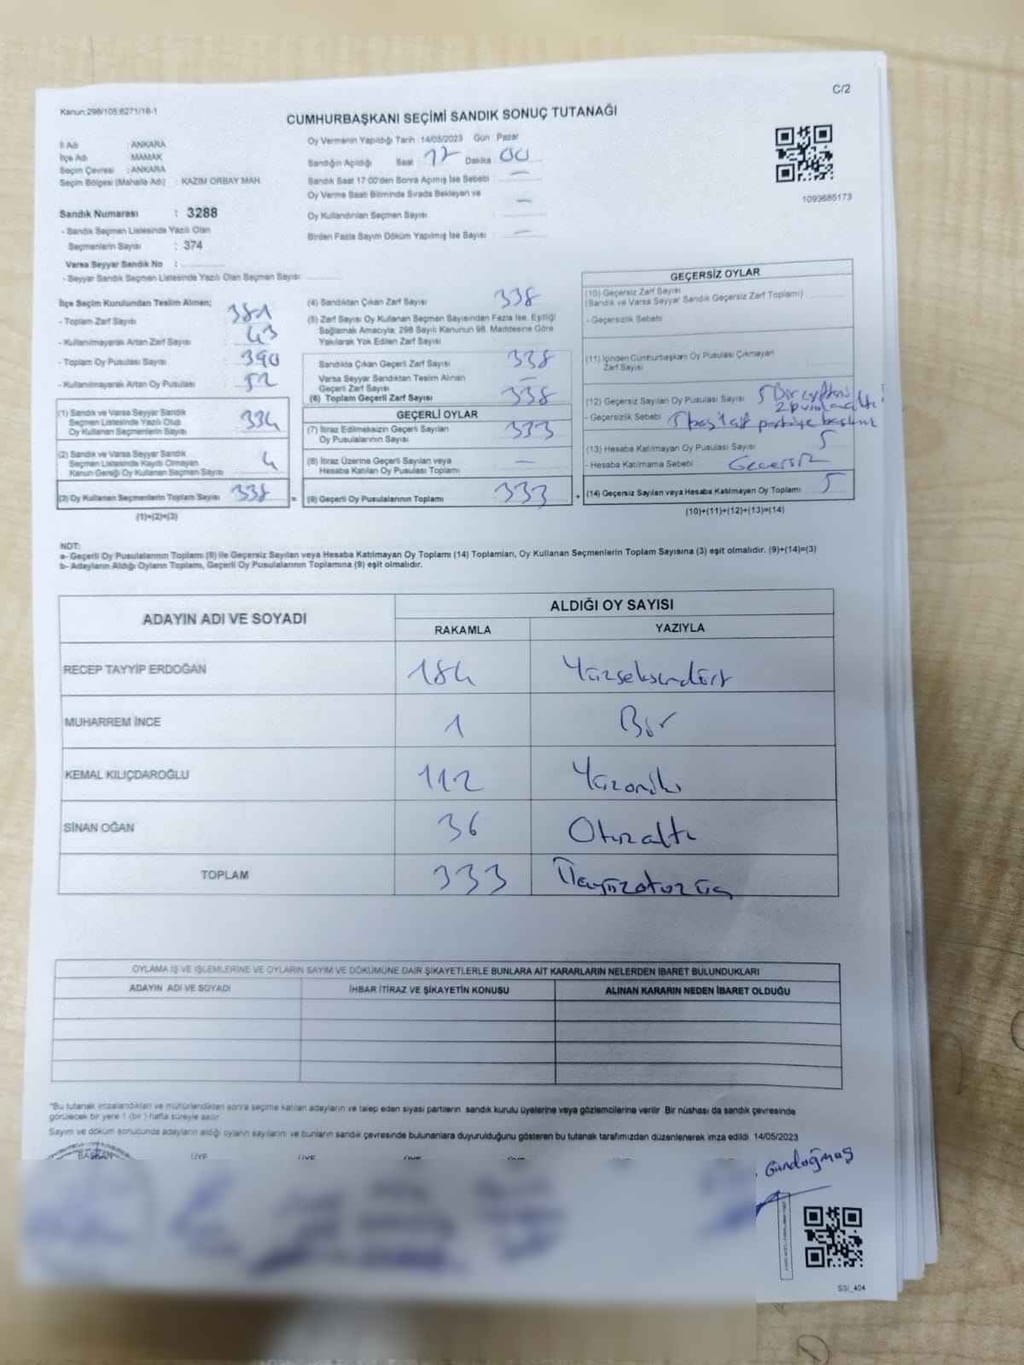 C/2
Kanun:298/105:6271/16-1
CUMHURBAŞKANI SEÇİMİ SANDIK SONUÇ TUTANAĞI
İl Adı : ANKARA
İlçe Adı : MAMAK
Seçim Çevresi : ANKARA
Seçim Bölgesi (Mahalle Adı) : KAZIM ORBAY MAH.
Sandık Numarası : 3288
- Sandık Seçmen Listesinde Yazılı Olan
Seçmenlerin Sayısı : 374
Varsa Seyyar Sandık No :
- Seyyar Sandık Seçmen Listesinde Yazılı Olan Seçmen Sayısı:
Oy Vermenin Yapıldığı Tarih :14/05/2023 Gün : Pazar
Sandığın Açıldığı Saat 17 Dakika 00
Sandık Saat 17:00'den Sonra Açılmış İse Sebebi : —
Oy Verme Saati Bitiminde Sırada Bekleyen ve
Oy Kullandırılan Seçmen Sayısı : —
Birden Fazla Sayım Döküm Yapılmış İse Sayısı : —
1093685173
İlçe Seçim Kurulundan Teslim Alınan;
- Toplam Zarf Sayısı : 381
- Kullanılmayarak Artan Zarf Sayısı : 43
- Toplam Oy Pusulası Sayısı : 390
- Kullanılmayarak Artan Oy Pusulası : 52
(1) Sandık ve Varsa Seyyar Sandık
Seçmen Listesinde Yazılı Olup
Oy Kullanan Seçmenlerin Sayısı 334
(2) Sandık ve Varsa Seyyar Sandık
Seçmen Listesinde Kayıtlı Olmayan
Kanun Gereği Oy Kullanan Seçmen Sayısı 4
(3) Oy Kullanan Seçmenlerin Toplam Sayısı 338 =
(1)+(2)=(3)
(4) Sandıktan Çıkan Zarf Sayısı 338
(5) Zarf Sayısı Oy Kullanan Seçmen Sayısından Fazla İse, Eşitliği
Sağlamak Amacıyla; 298 Sayılı Kanunun 98. Maddesine Göre
Yakılarak Yok Edilen Zarf Sayısı
Sandıkta Çıkan Geçerli Zarf Sayısı 338
Varsa Seyyar Sandıktan Teslim Alınan
Geçerli Zarf Sayısı —
(6) Toplam Geçerli Zarf Sayısı 338
GEÇERLİ OYLAR
(7) İtiraz Edilmeksizin Geçerli Sayılan
Oy Pusulalarının Sayısı 333
(8) İtiraz Üzerine Geçerli Sayılan veya
Hesaba Katılan Oy Pusulası Toplamı —
(9) Geçerli Oy Pusulalarının Toplamı 333 +
GEÇERSİZ OYLAR
(10) Geçersiz Zarf Sayısı
(Sandık ve Varsa Seyyar Sandık Geçersiz Zarf Toplamı)
- Geçersizlik Sebebi
(11) İçinden Cumhurbaşkanı Oy Pusulası Çıkmayan
Zarf Sayısı
(12) Geçersiz Sayılan Oy Pusulası Sayısı 5
- Geçersizlik Sebebi
(13) Hesaba Katılmayan Oy Pusulası Sayısı 5
- Hesaba Katılmama Sebebi Geçersiz
(14) Geçersiz Sayılan veya Hesaba Katılmayan Oy Toplamı 5
(10)+(11)+(12)+(13)=(14)
NOT:
a- Geçerli Oy Pusulalarının Toplamı (9) ile Geçersiz Sayılan veya Hesaba Katılmayan Oy Toplamı (14) Toplamları, Oy Kullanan Seçmenlerin Toplam Sayısına (3) eşit olmalıdır. (9)+(14)=(3)
b- Adayların Aldığı Oyların Toplamı, Geçerli Oy Pusulalarının Toplamına (9) eşit olmalıdır.
ADAYIN ADI VE SOYADI
ALDIĞI OY SAYISI
RAKAMLA YAZIYLA
RECEP TAYYİP ERDOĞAN 184 Yüzseksendört
MUHARREM İNCE 1 Bir
KEMAL KILIÇDAROĞLU 112 Yüzoniki
SİNAN OĞAN 36 Otuzaltı
TOPLAM 333 Üçyüzotuzüç
OYLAMA İŞ VE İŞLEMLERİNE VE OYLARIN SAYIM VE DÖKÜMÜNE DAİR ŞİKAYETLERLE BUNLARA AİT KARARLARIN NELERDEN İBARET BULUNDUKLARI
ADAYIN ADI VE SOYADI İHBAR İTİRAZ VE ŞİKAYETİN KONUSU ALINAN KARARIN NEDEN İBARET OLDUĞU
*Bu tutanak imzalandıktan ve mühürlendikten sonra seçime katılan adayların ve talep eden siyasi partilerin sandık kurulu üyelerine veya gözlemcilerine verilir. Bir nüshası da sandık çevresinde
görülecek bir yere 1 (bir) hafta süreyle asılır.
Sayım ve döküm sonucunda adayların aldığı oyların sayılarını ve bunların sandık çevresinde bulunanlara duyurulduğunu gösteren bu tutanak tarafımızdan düzenlenerek imza edildi. 14/05/2023
BAŞKAN ÜYE ÜYE ÜYE ÜYE
Gündoğmuş
SSI_404